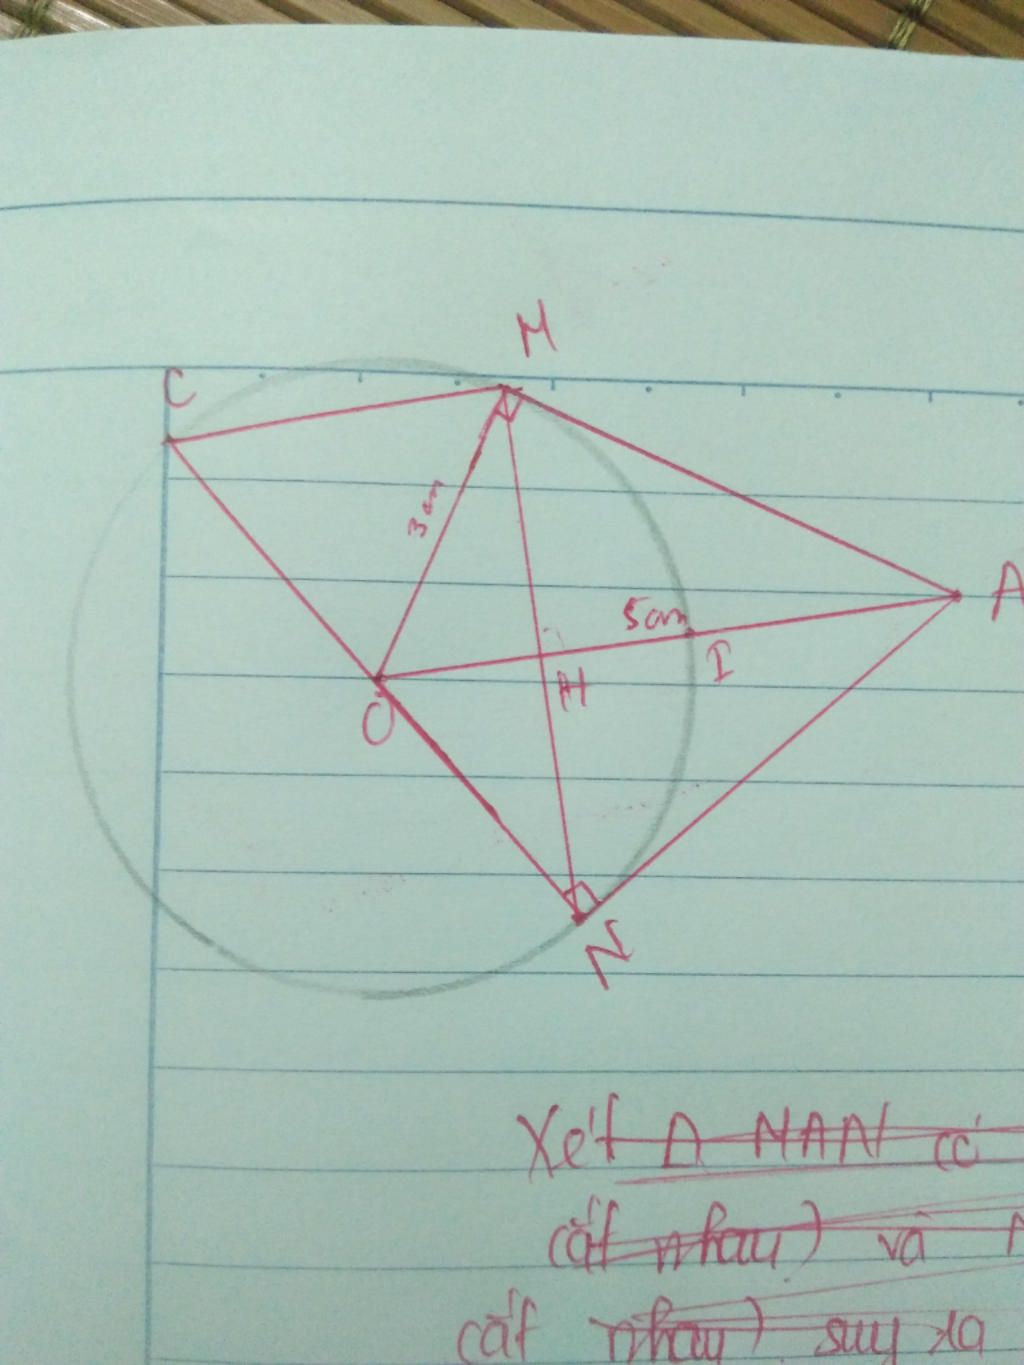 M
C
3 cm
A
5cm
I
H
O
N
Xét Δ MAN có
cắt nhau) và
cắt nhau) suy ra